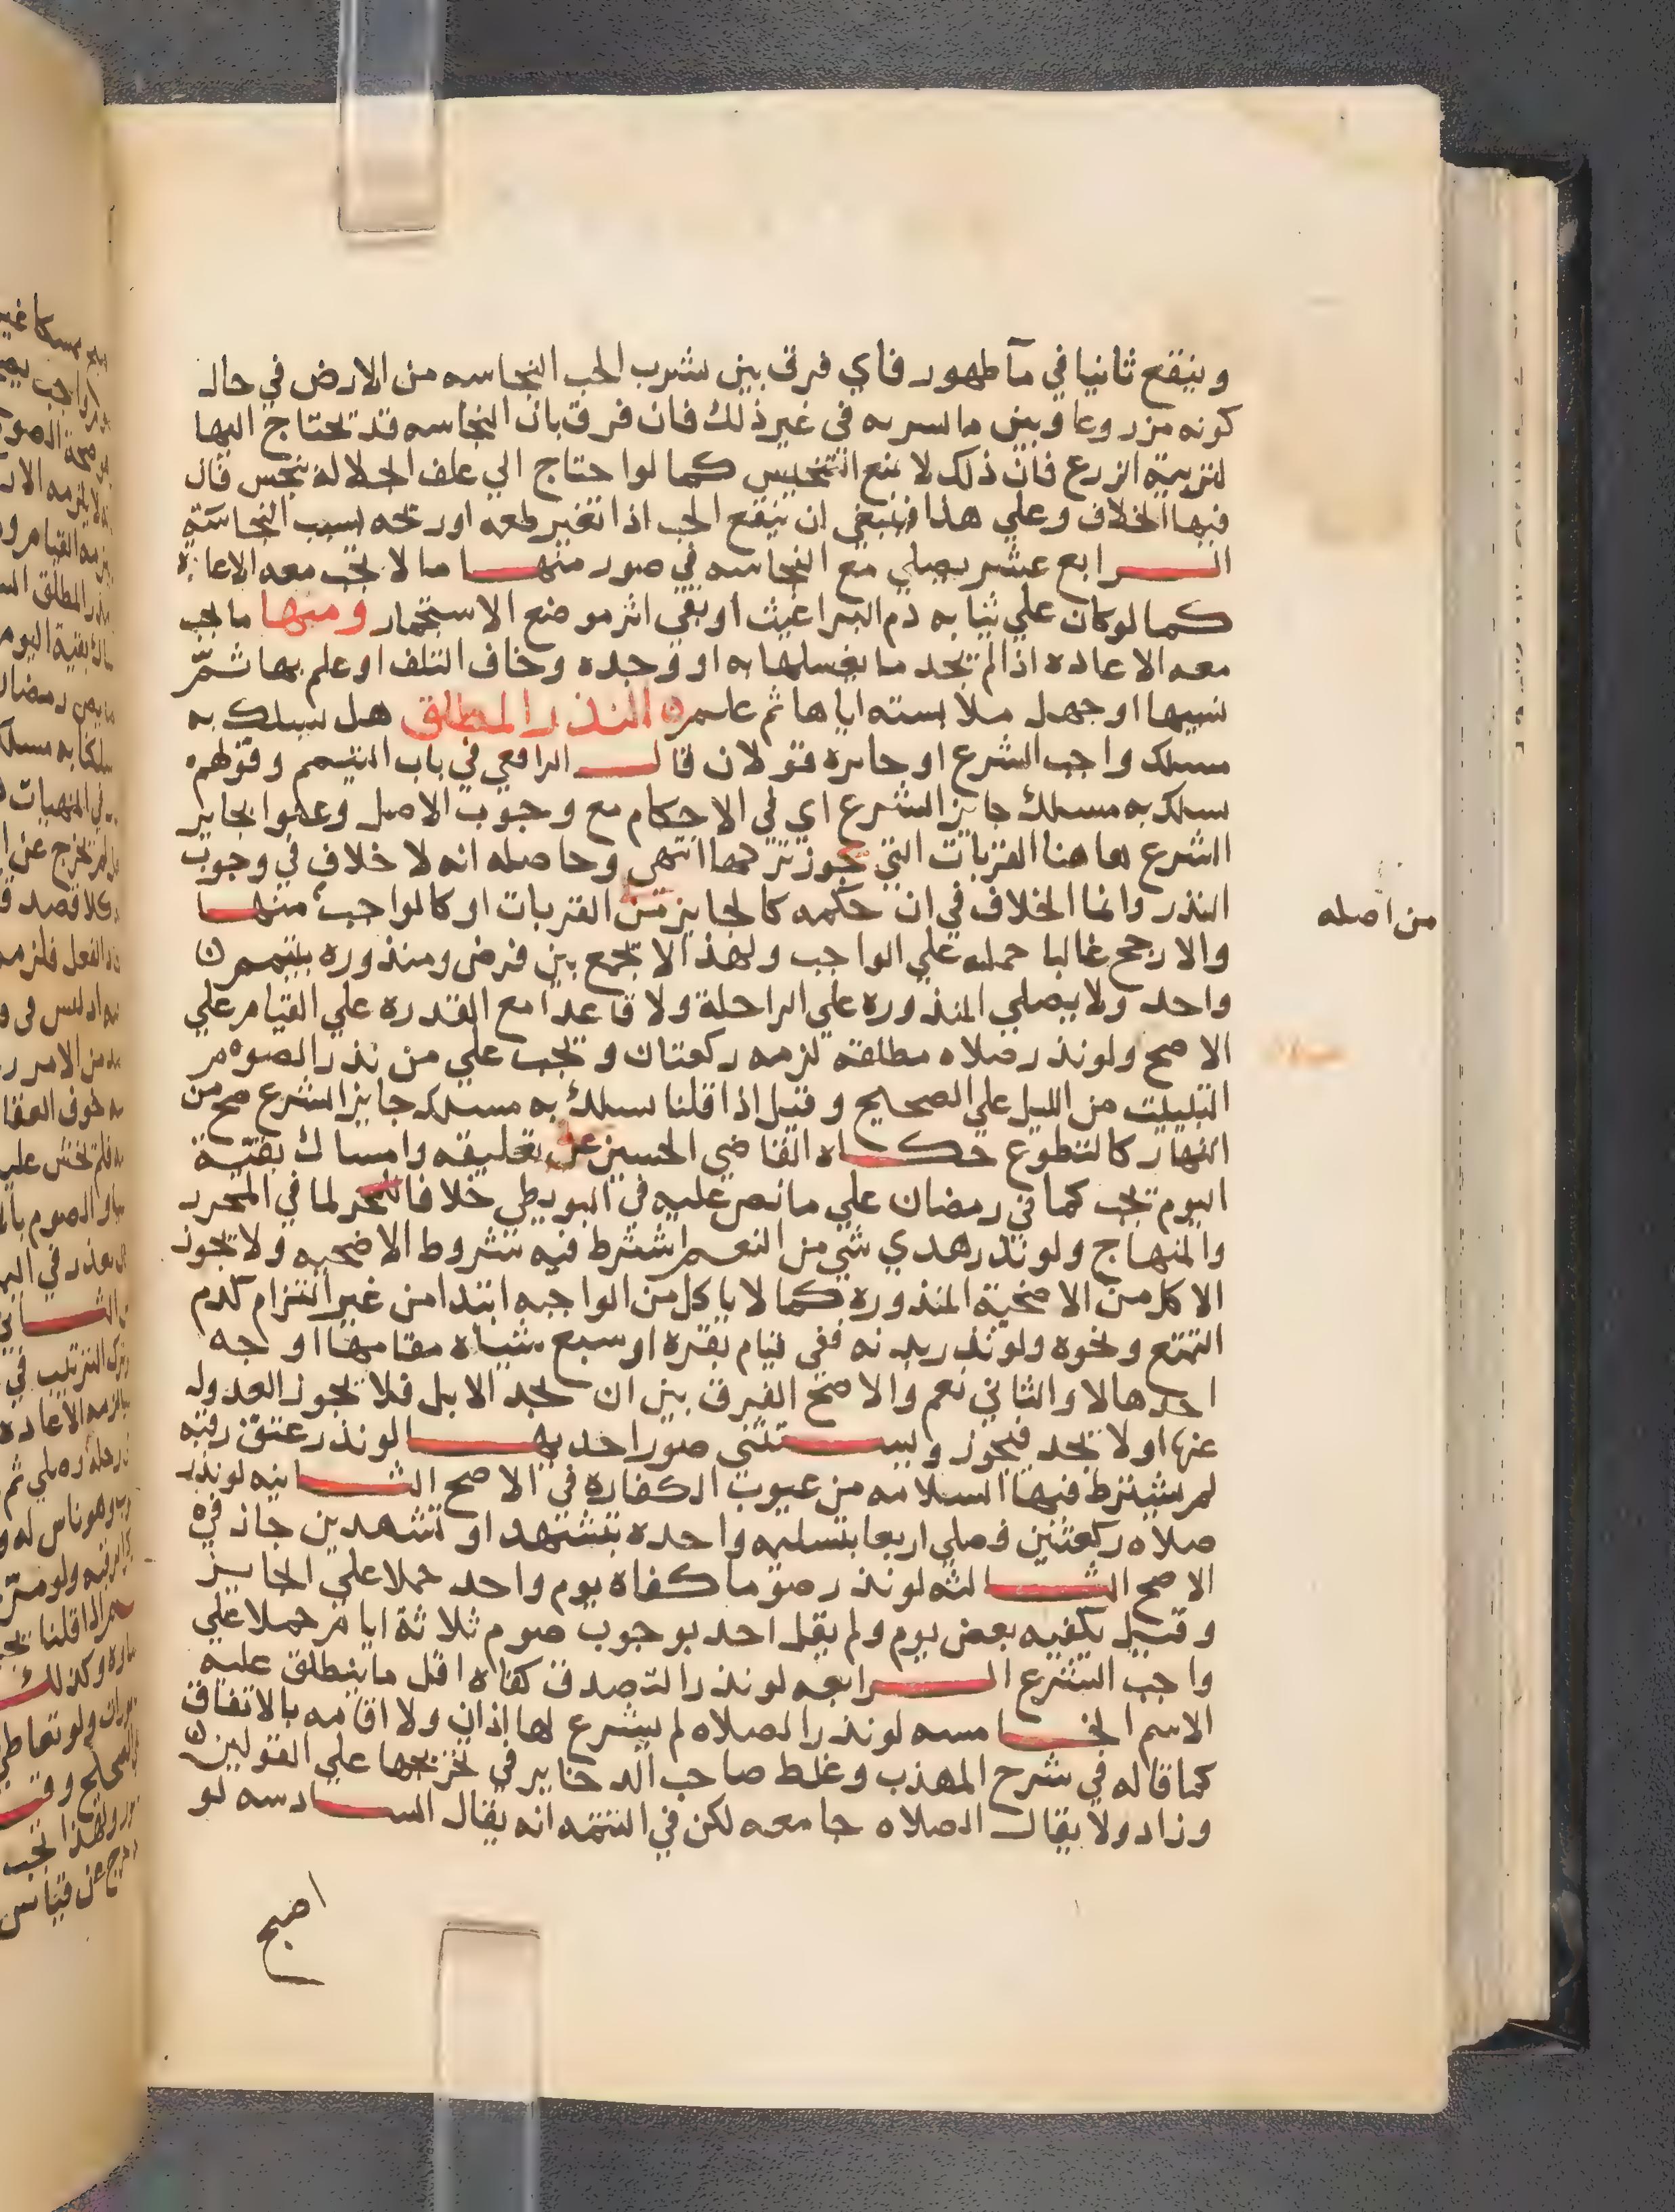 وينقع ثانيا في مآ طهور فاي فرق بين شرب الحب النجاسه من الارض في حال
كونه مزروعا وبين ما سربه في غير ذلك فان فرق بان النجاسه قد تحتاج اليها
لتربية الزرع فان ذلك لا يمنع التنجيس كما لو احتاج الي علف الجلاله بنجس قال
فيها الخلاف وعلي هذا فينبغي ان ينقع الحب اذا تغير طعمه او ريحه بسبب النجاسة
الرابع عشر يصلي مع النجاسه في صور منها ما لا تجب معه الاعادة
كما لو كان علي ثيابه دم البراغيث او بقي اثر موضع الاستجمار ومنها ما يجب
معه الاعاده اذا لم يجد ما يغسلها به او وجده وخاف التلف او علم بها ثمّ
نسيها او جهل ملابسته اياها ثم علم ن النذر المطلق هل يسلك به
مسلك واجب الشرع او جايزه قولان قال الرافعي في باب التيمم وقولهم
يسلك به مسلك جايز الشرع اي في الاحكام مع وجوب الاصل وعنوا بجايز
الشرع هاهنا القربات التي يجوز تركها انتهي وحاصله انه لا خلاف في وجوب
النذر وانما الخلاف في ان حكمه كالجايز من القربات او كالواجب منها
من اصله
والارجح غالبا حمله علي الواجب ولهذا لا يجمع بين فرض ومنذوره بتيمم ن
واحد ولا يصلي المنذوره علي الراحلة ولا قاعدا مع القدره علي القيام علي
الاصح ولو نذر صلاه مطلقة لزمه ركعتان ويجب علي من نذر الصوم
التبييت من الليل علي الصحيح وقيل اذا قلنا يسلك به مسلك جايز الشرع صح من
النهار كالتطوع حكاه القاضي الحسين في تعليقه وامساك بقية
اليوم تجب كما في رمضان علي ما نص عليه في البويطي خلافا لما في المحرر
والمنهاج ولو نذر هدي شي من النعم اشترط فيه شروط الاضحيه ولا يجوز
الاكل من الاضحية المنذورة كما لا ياكل من الواجبه ابتدا من غير التزام كدم
التمتع ونحوه ولو نذر بدنه ففي قيام بقره او سبع شياه مقامها اوجه
احدها لا والثاني نعم والاصح الفرق بين ان يجد الابل فلا يجوز العدول
عنها او لا يجد فيجوز ويستثنى صور احديها لو نذر عتق رقبه
لم يشترط فيها السلامه من عيوب الكفارة في الاصح الثانيه لو نذر
صلاه ركعتين فصلي اربعا بتسليمه واحده بتشهد او تشهدين جاز في
الاصح الثالثه لو نذر صوما كفاه يوم واحد حملا علي الجايز
وقيل يكفيه بعض يوم ولم يقل احد بوجوب صوم ثلاثة ايام حملا علي
واجب الشرع الرابعه لو نذر التصدق كفاه اقل ما ينطلق عليه
الاسم الخامسه لو نذر الصلاه لم يشرع لها اذان ولا اقامه بالاتفاق
كما قاله في شرح المهذب وغلط صاحب الدخاير في تخريجها علي القولين ن
وزاد ولا يقال الصلاه جامعه لكن في التتمه انه يقال السادسه لو
اصبح